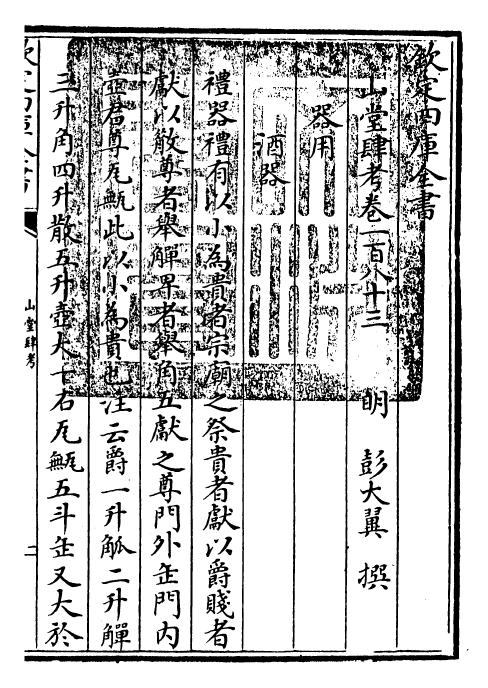 欽定四庫全書
山堂肆考卷一百八十三 明 彭大翼 撰
器用
酒器
禮器禮有以小為貴者宗廟之祭貴者獻以爵賤者
獻以散尊者舉觶卑者舉角五獻之尊門外缶門内
壺君尊瓦甒此以小為貴也注云爵一升觚二升觶
三升角四升散五升壺大一石瓦甒五斗缶又大於
山堂肆考
二